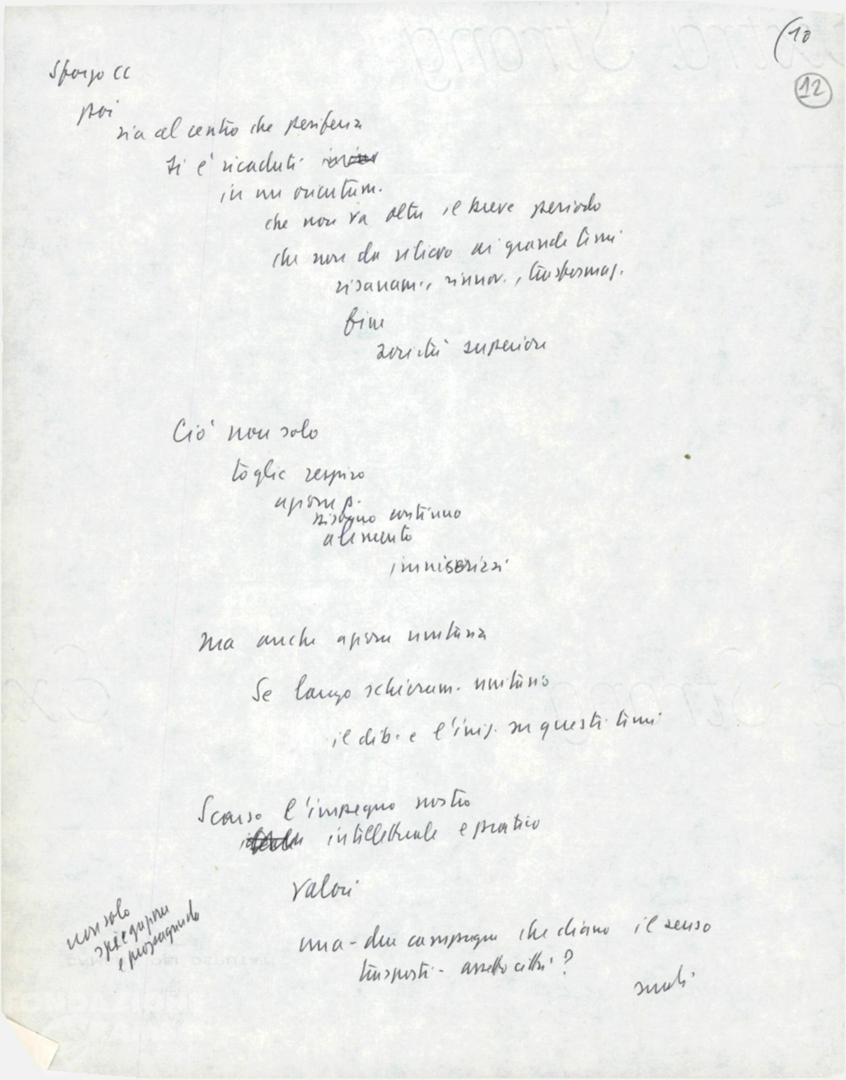 (10
12
Sforzo CC
poi
sia al centro che periferia
si è ricaduti
in un orientam.
che non va oltre il breve periodo
che non da rilievo ai grandi temi
risanam., rinnov., trasformaz.
fini
società superiore
Ciò non solo
toglie respiro
azione p.
bisogno continuo
alimento
immiserirsi
ma anche azione unitaria
Se largo schieram. unitario
il dib. e l'iniz. su questi temi
Scarso l'impegno nostro
intellettuale e pratico
valori
non solo
spiegazione
e propaganda
una-due campagne che diano il senso
trasporti - assetto città?